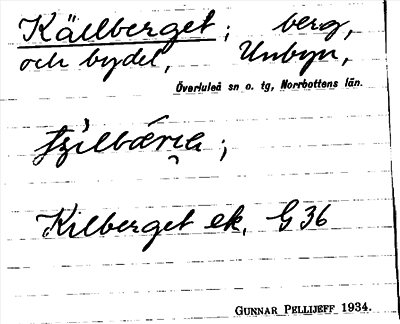 Källberget; berg,
och bydel, Unbyn,
Överluleå sn o. tg, Norrbottens län.
Kilberget ek. G 36
GUNNAR PELLIJEFF 1934.